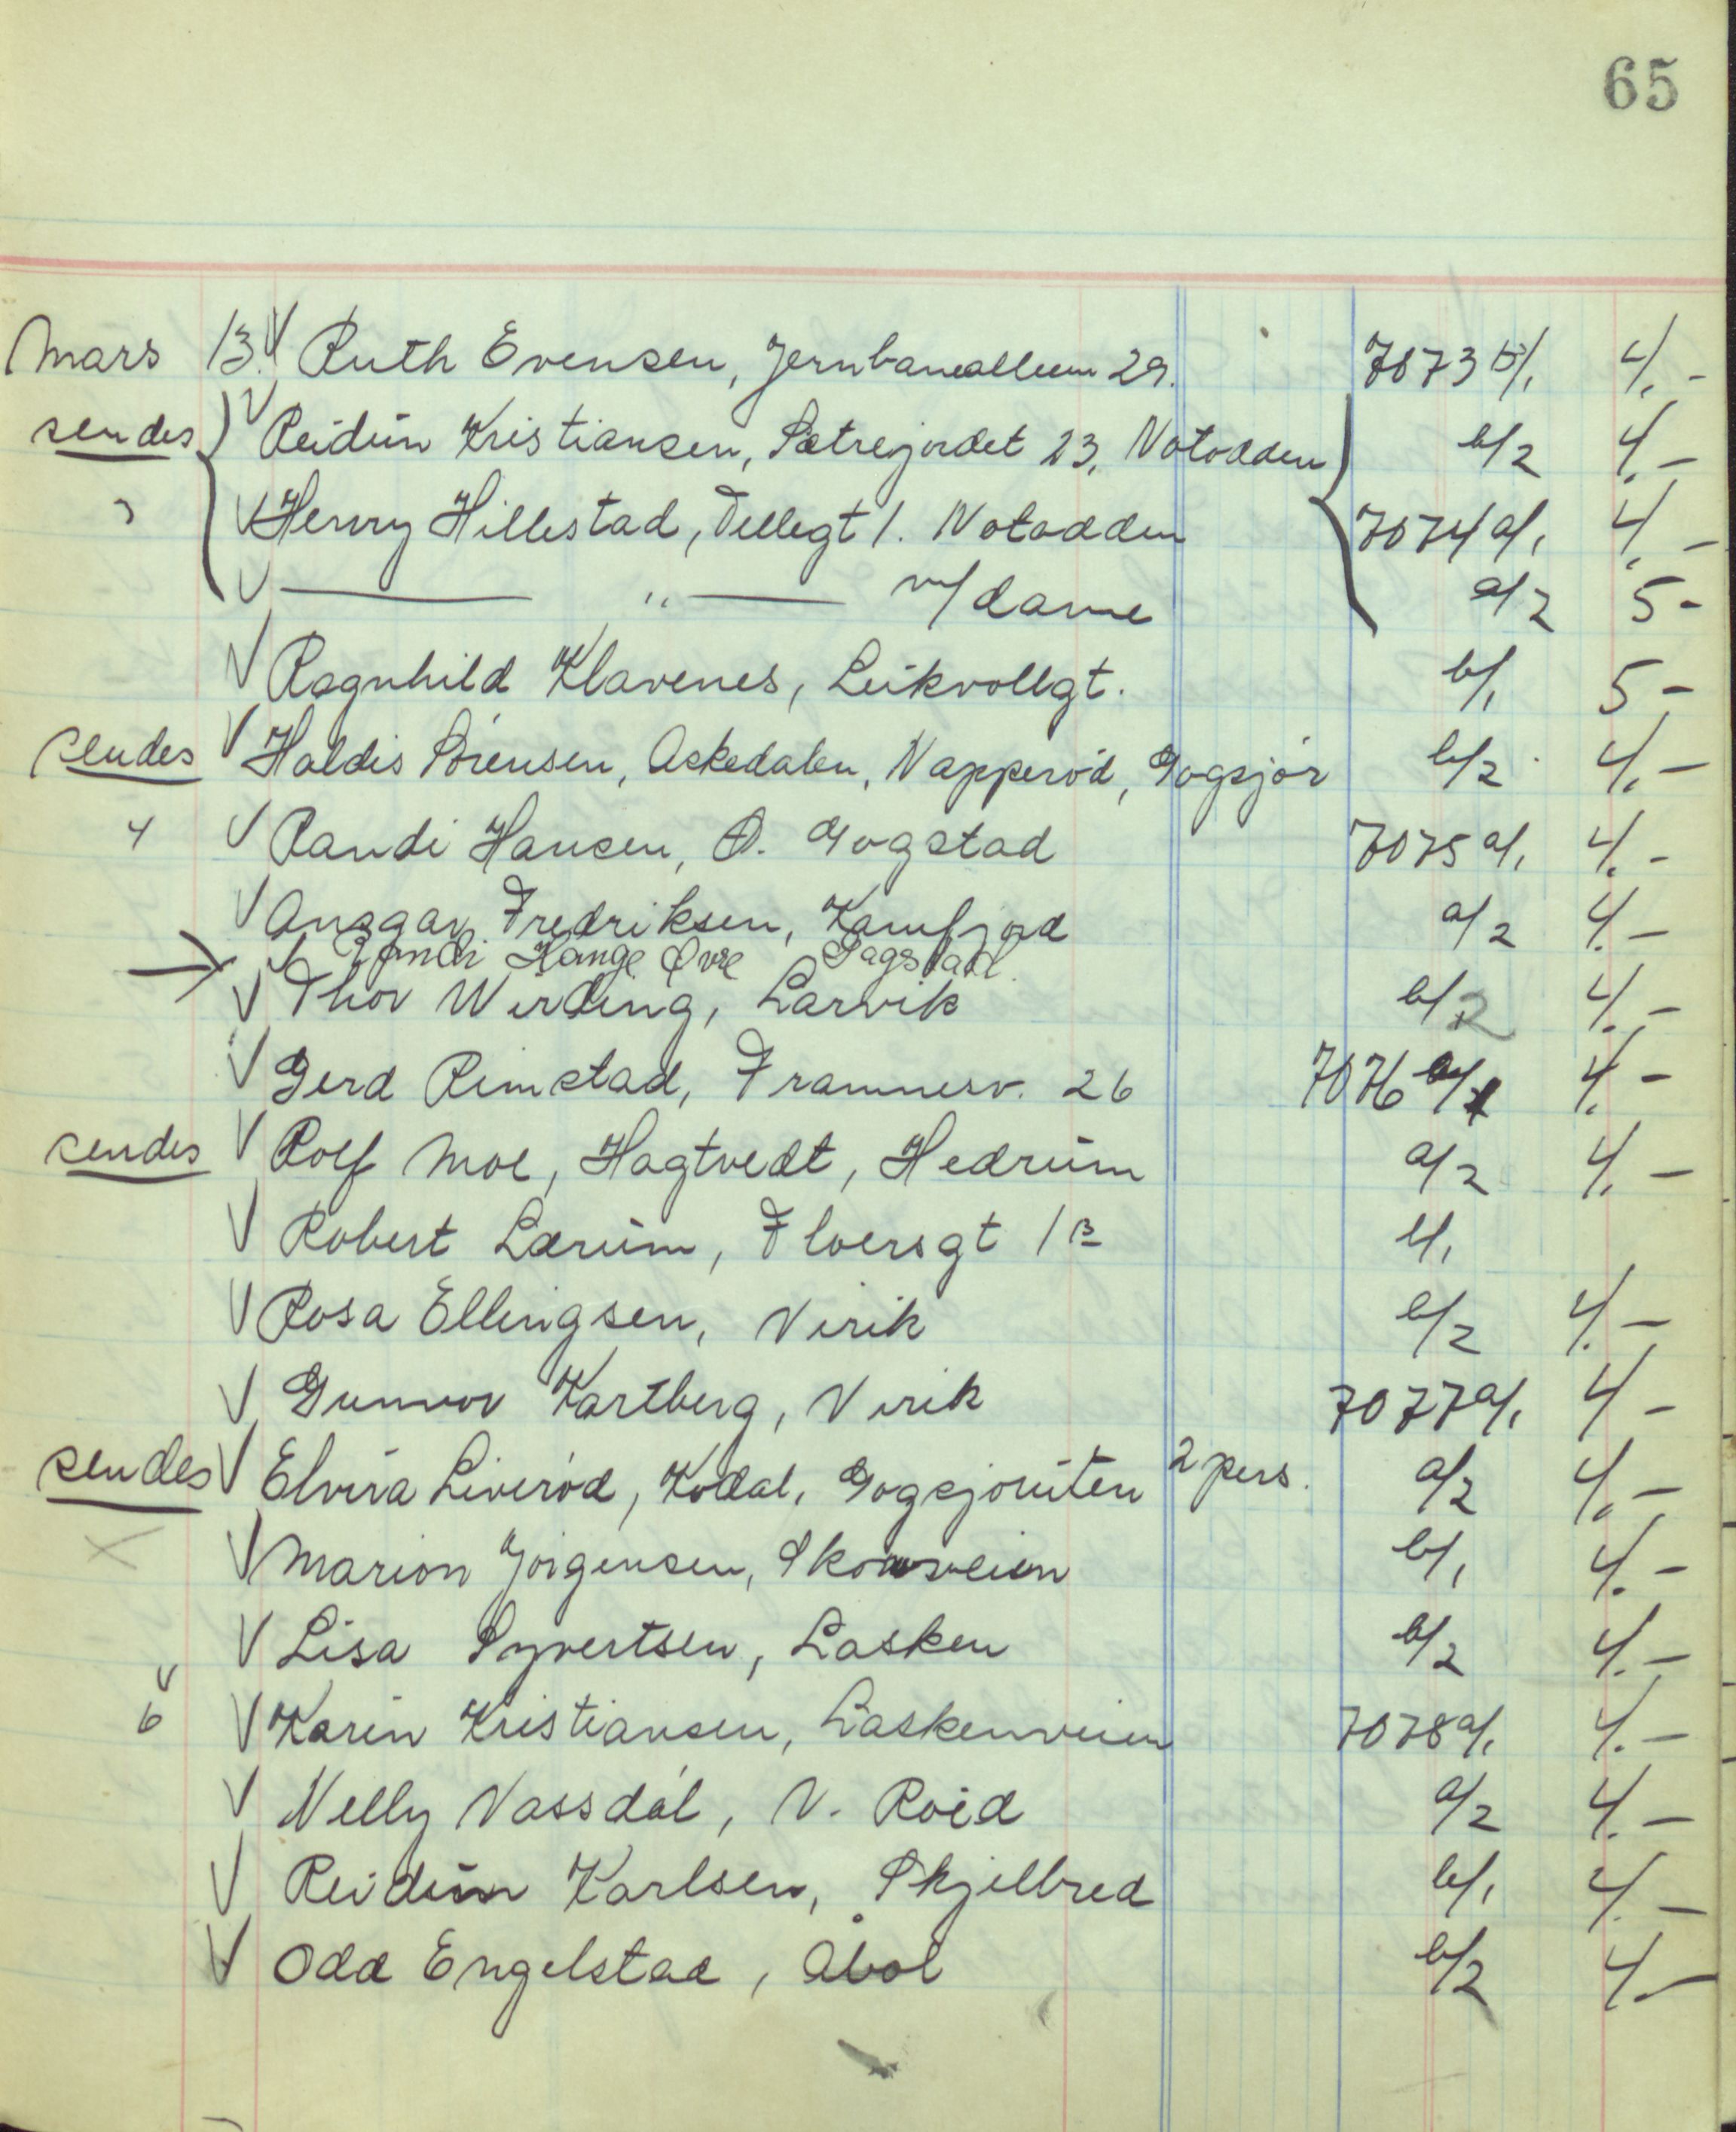 65
Mars 13. Ruth Evensen, Jernbanealleen 29. 7073 b/1 4.-
sendes Reidun Kristiansen, Sætrejordet 23, Notodden b/2 4.-
Henry Hillestad, Tellegt 1. Notodden 7074 a/1 4.-
— " — m/dame a/2 5-
Ragnhild Klavenes, Leikvollgt. b/1 5-
sendes Haldis Sørensen, Askedalen, Napperød, Gogsjør b/2 4.-
4 Randi Hansen, Ø. Gogstad 7075 a/1 4.-
Ansgar Fredriksen, Kamfjord a/2 4.-
Hange Øvre Gogstad.
Thor Wirding, Larvik b/2 4.-
Gerd Rimstad, Framnesv. 26 7076 a/1 4.-
sendes Rolf Moe, Hagtvedt, Hedrum a/2 4.-
Robert Lærum, Floersgt 1B b/1
Rosa Ellingsen, Virik b/2 4.-
Gunnvor Kartberg, Virik 7077 a/1 4-
sendes Elvira Liverød, Kodal, Gogsjøruten 2 pers. a/2 4.-
Marion Jørgensen, Skovveien b/1 4.-
Lisa Syvertsen, Lasken b/2 4.-
6 Karin Kristiansen, Laskenveien 7078 a/1 4.-
Nelly Vassdal, N. Røid a/2 4.-
Reidun Karlsen, Skjellbred b/1 4.-
Odd Engelstad, Åbol b/2 4.-